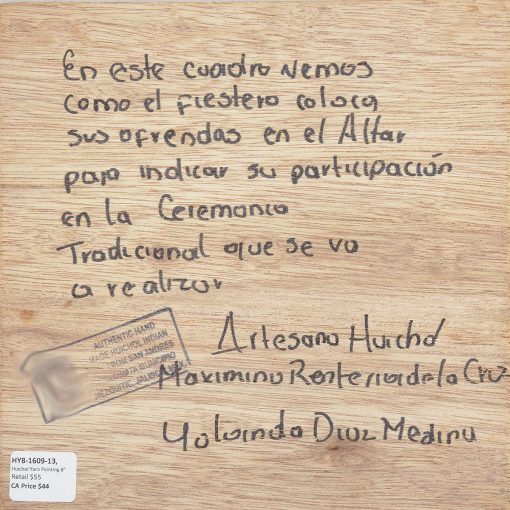 En este cuadro vemos
como el fiestero coloca
sus ofrendas en el Altar
para indicar su participación
en la Ceremonia
Tradicional que se va
a realizar
Artesano Huichol
Maximino Renteria de la Cruz
Yolanda Diaz Medina
AUTHENTIC HAND
MADE HUICHOL INDIAN
SAN ANDRES
MEZQUITIC, JALISCO
HY8-1609-13,
Huichol Yarn Painting 8"
Retail $55
CA Price $44